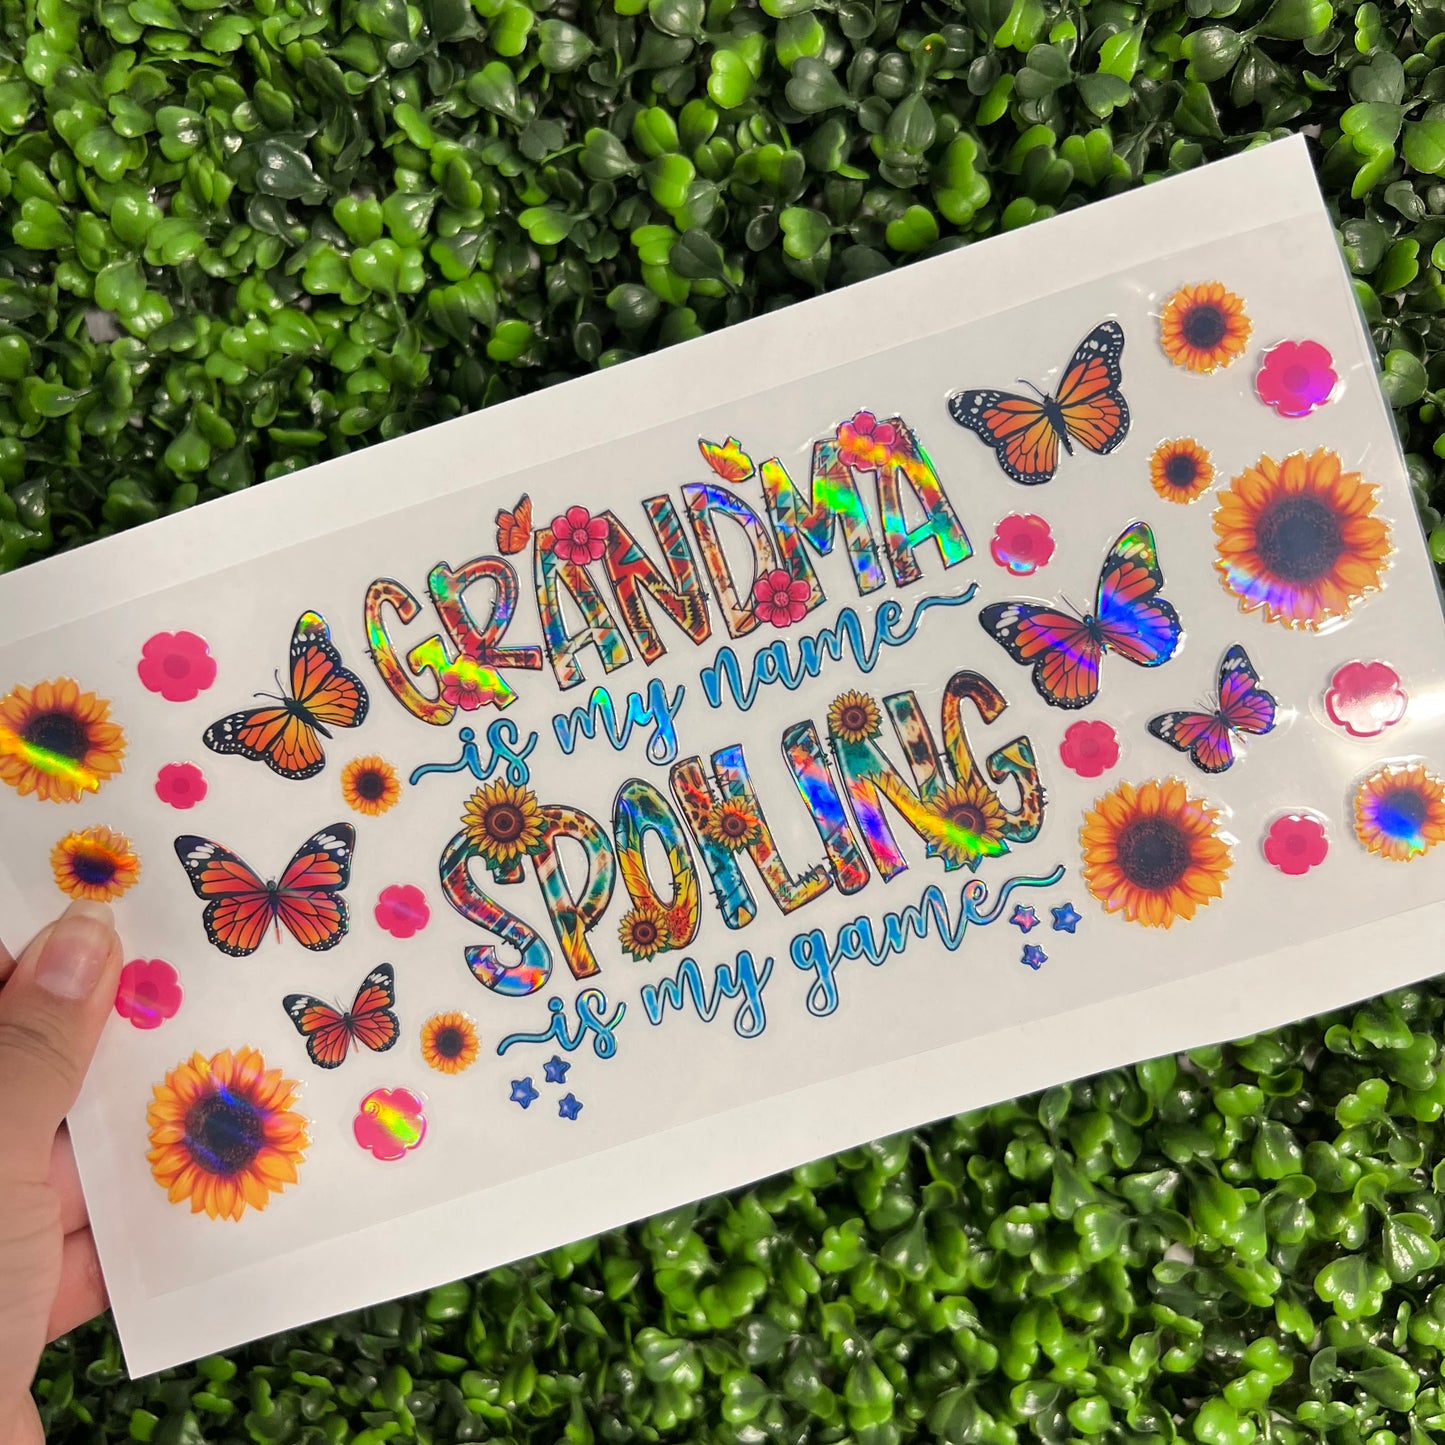 GRANDMA
is my name
SPOILING
is my game